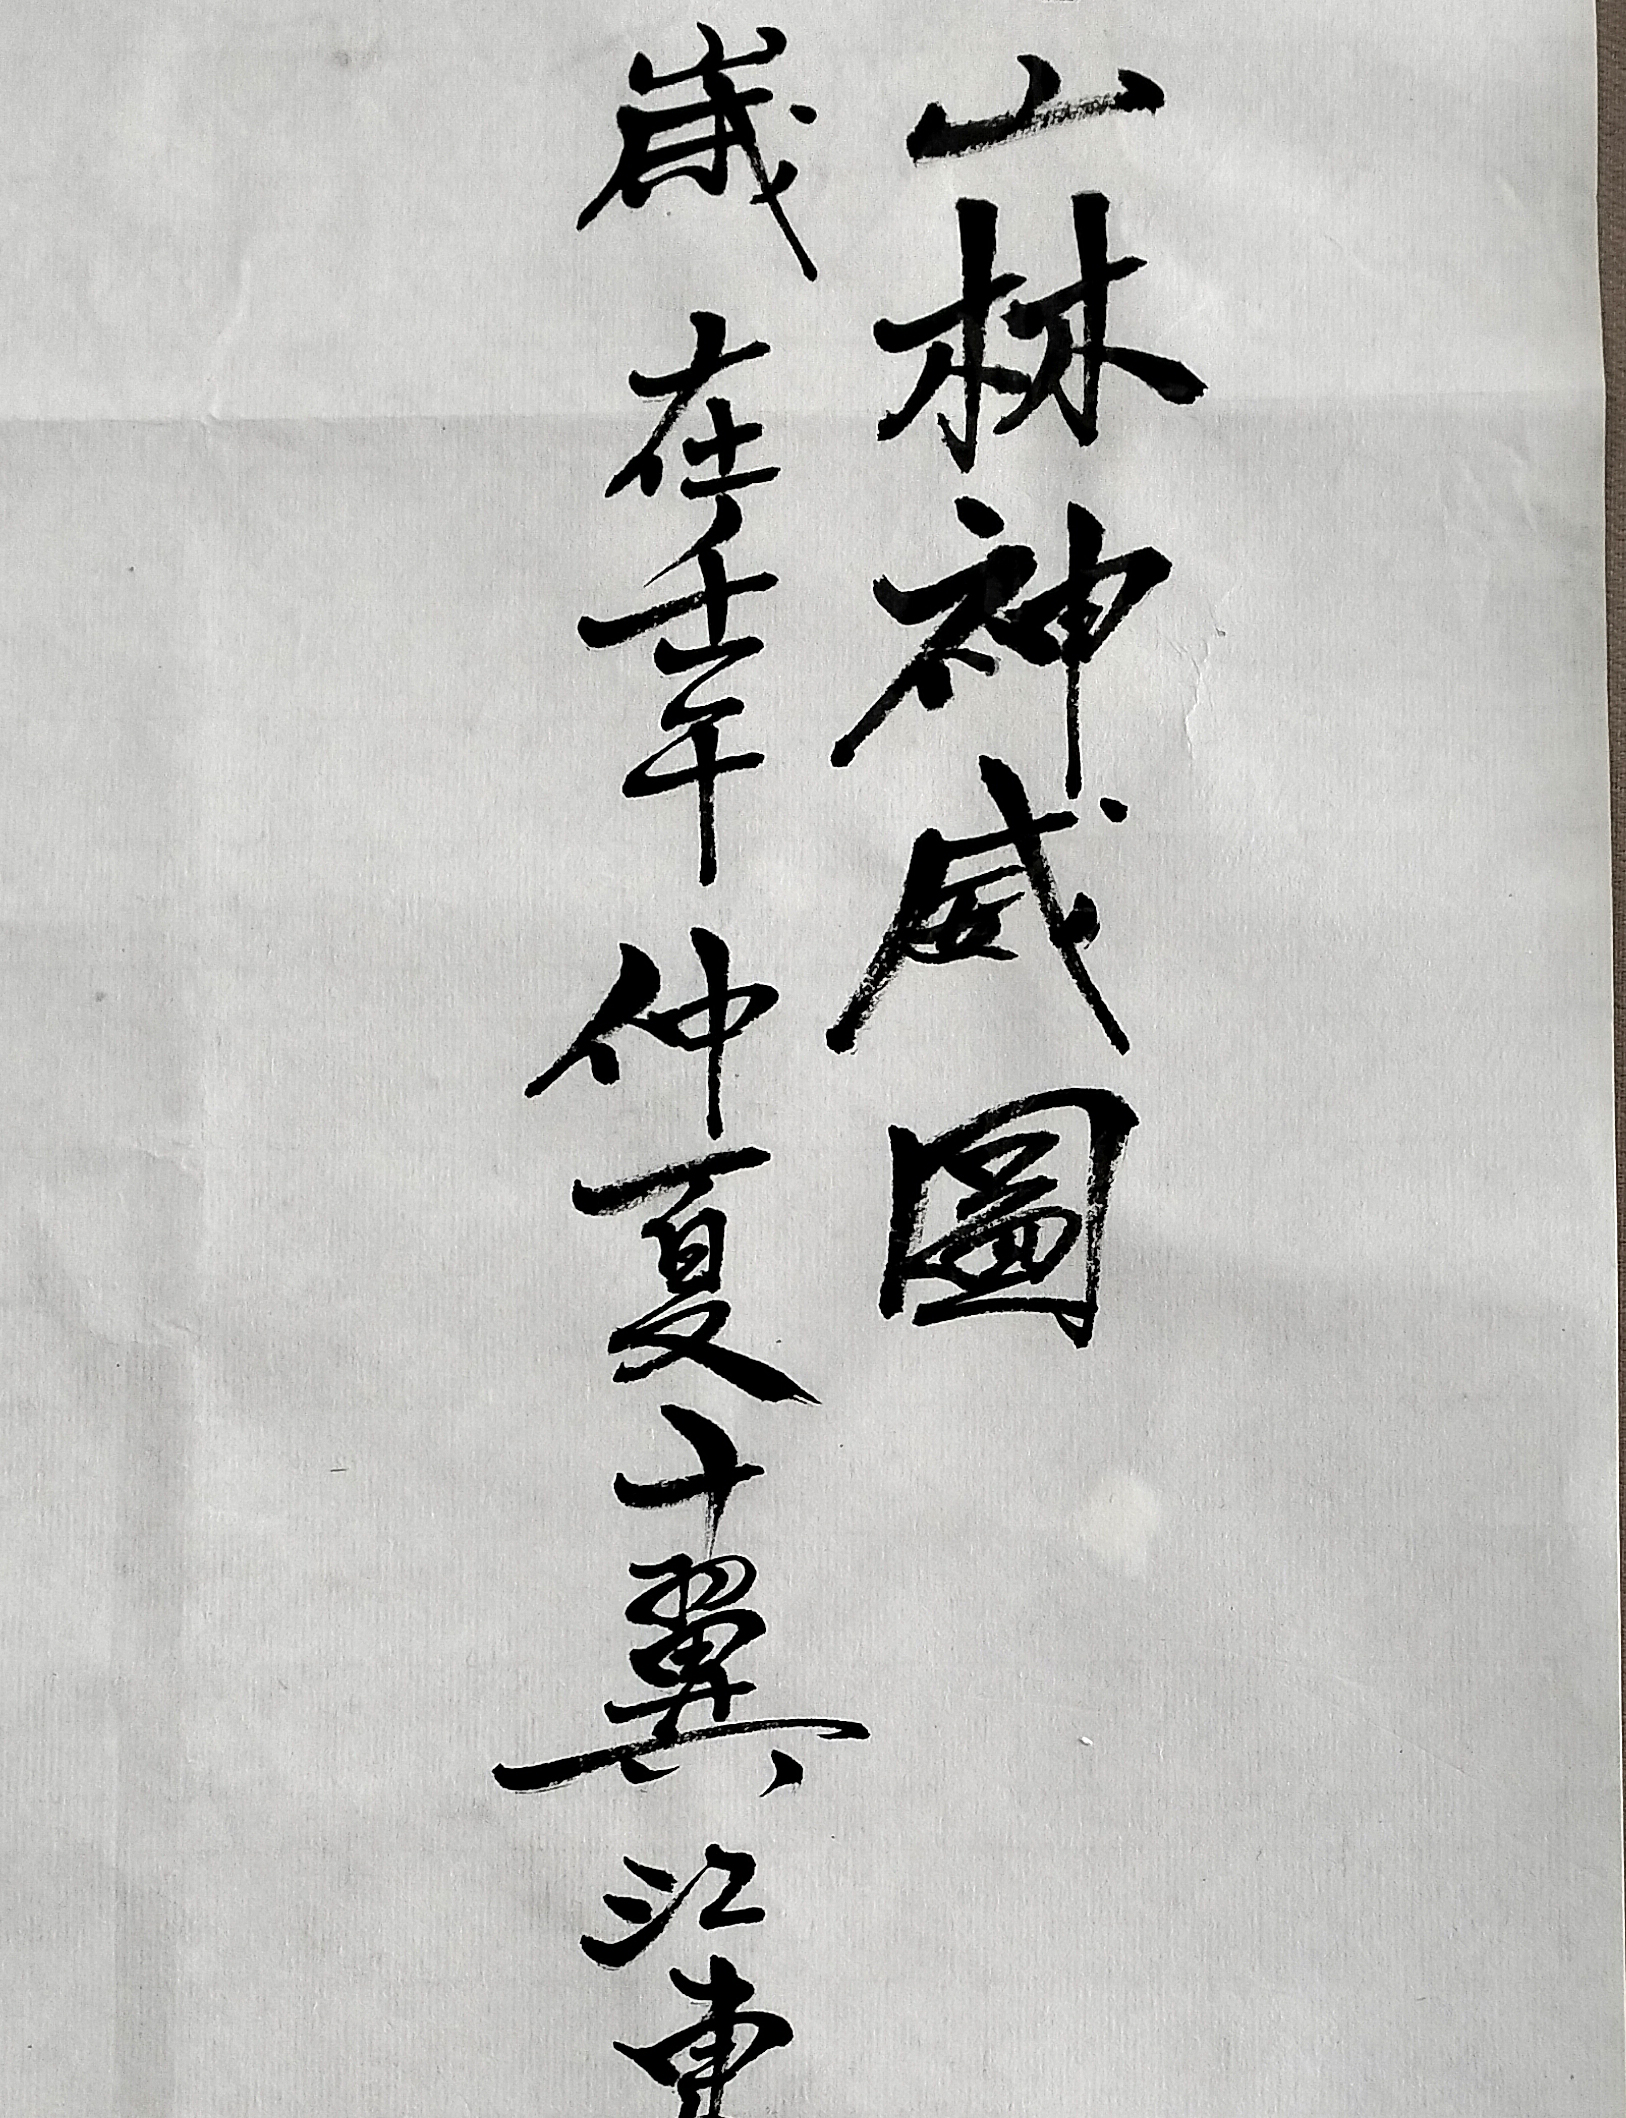 山林神威圖
歲在壬午仲夏十翼江東